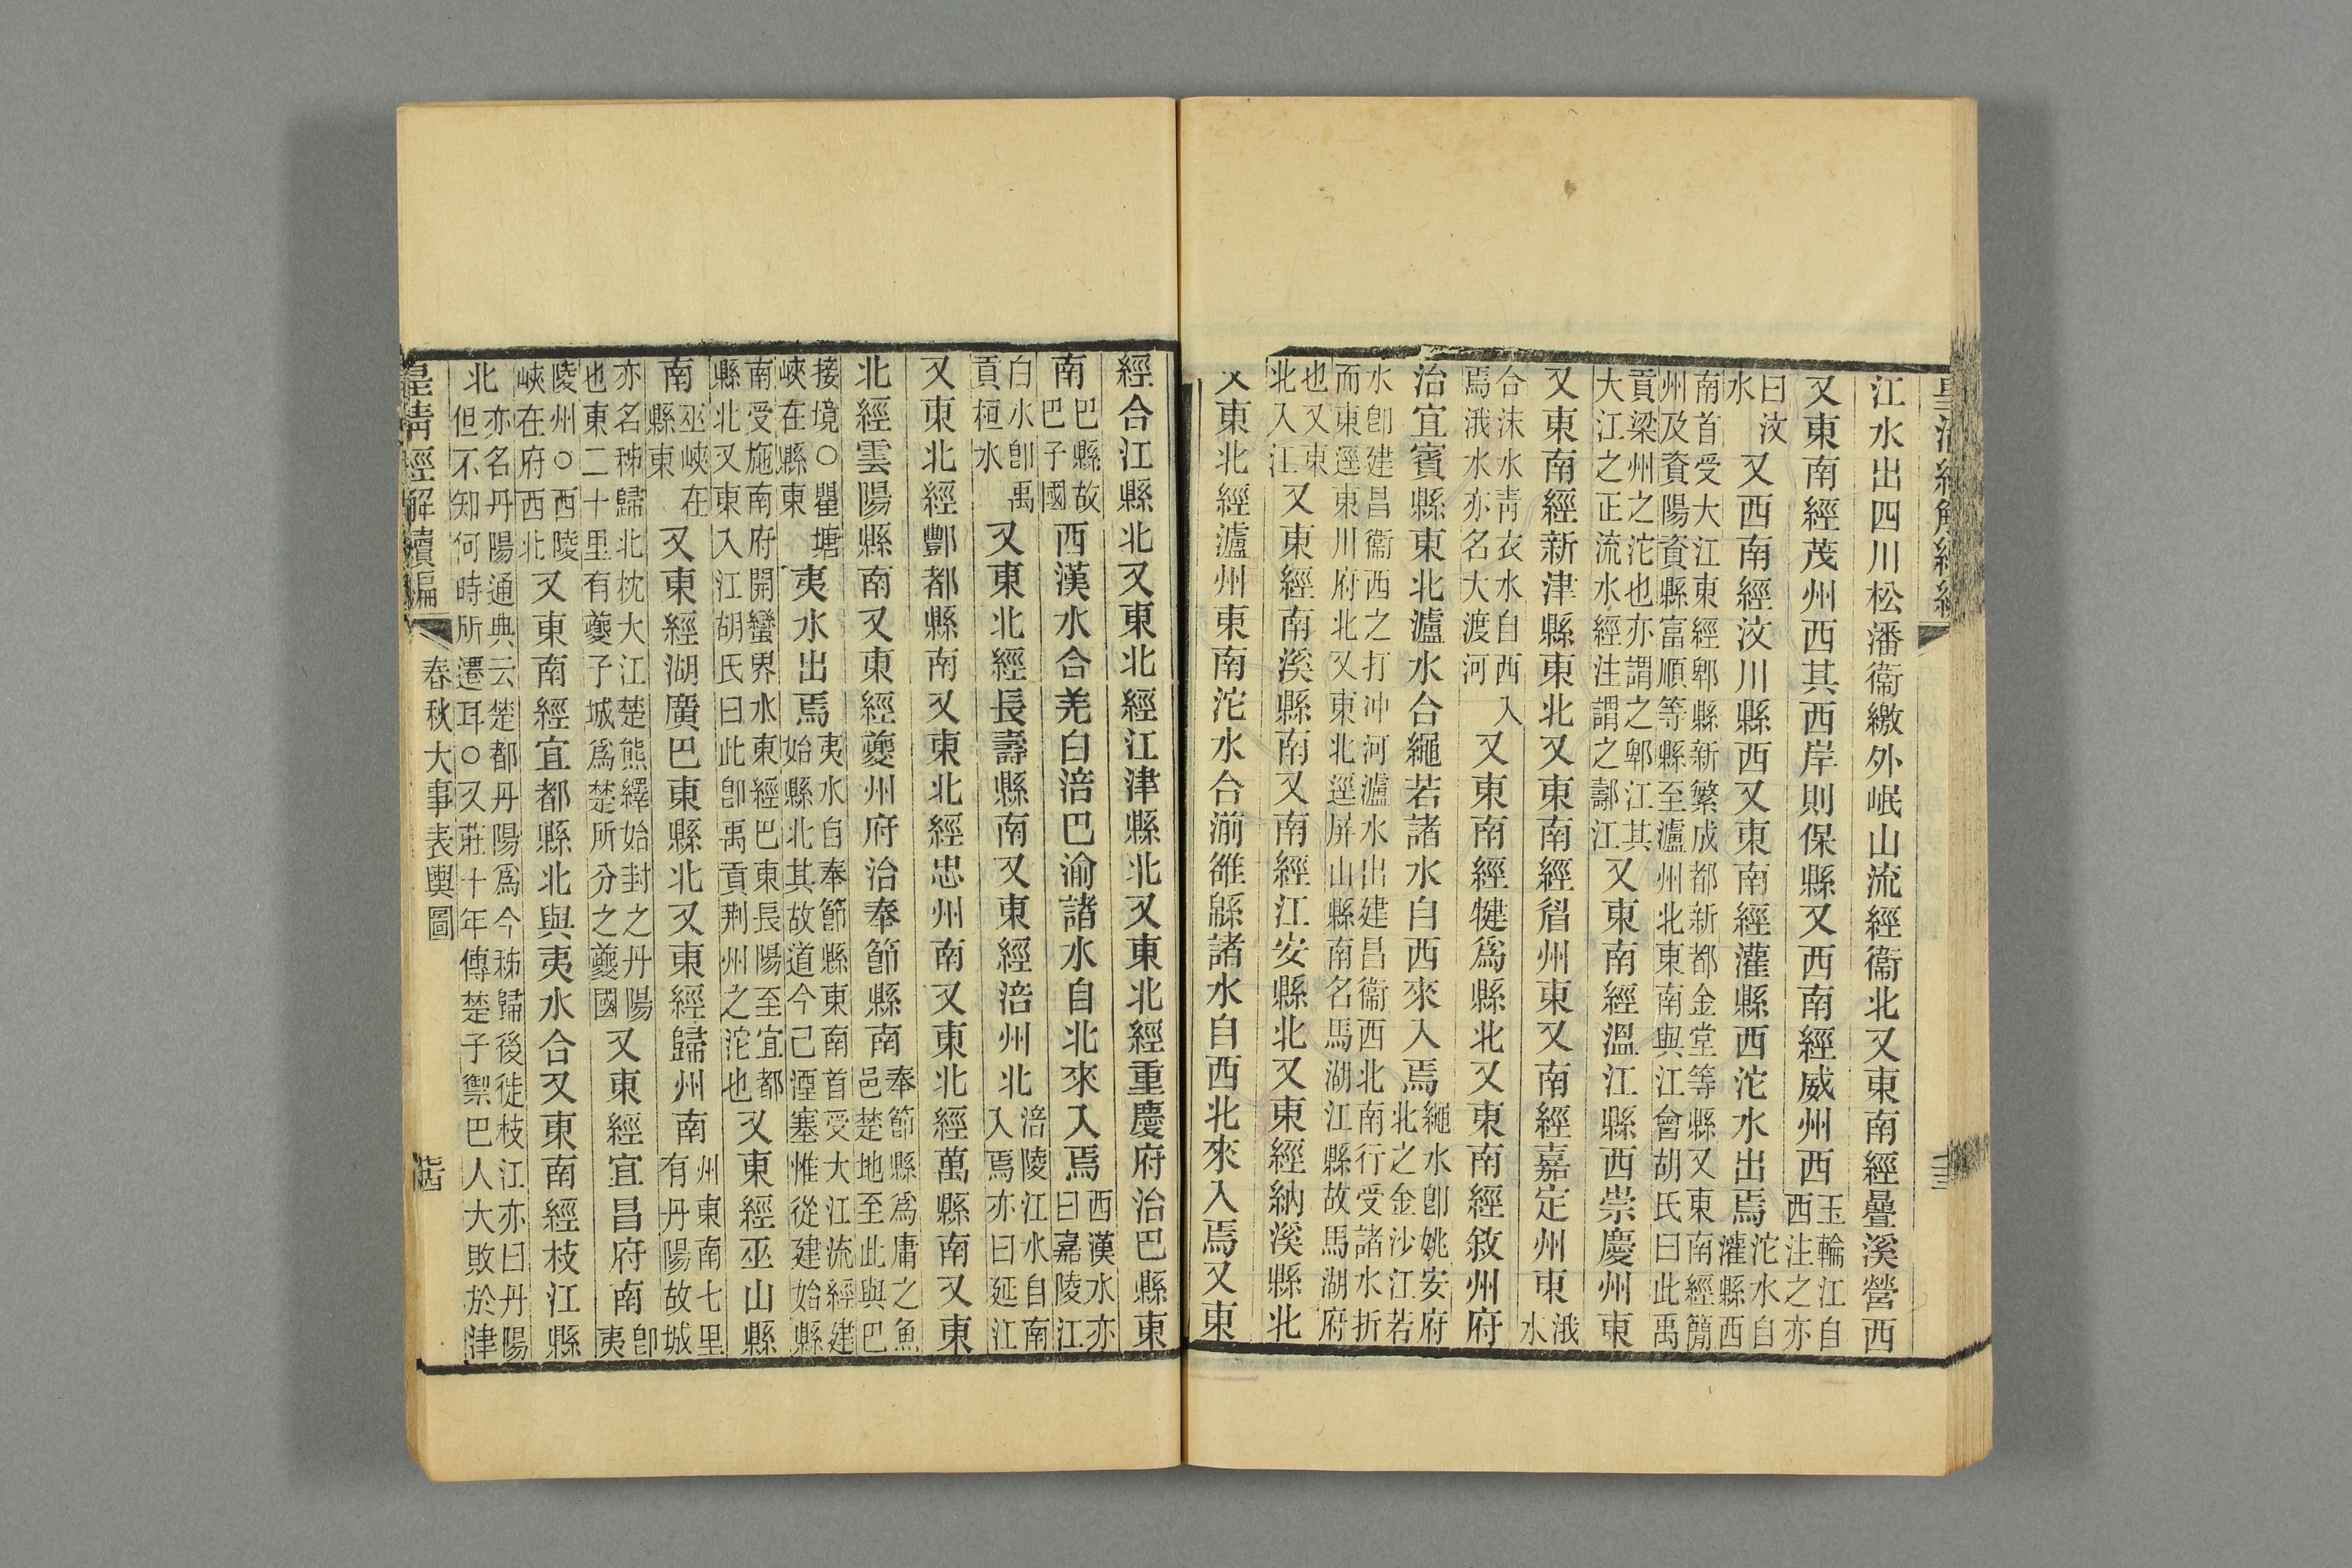 江水出四川松潘衞繳外岷山流經衞北又東南經疊溪營西
又東南經茂州西其西岸則保縣又西南經威州西玉輪江自西注之亦
曰汶水又西南經汶川縣西又東南經灌縣西沱水出焉沱水自灌縣西
南首受大江東經郫縣新繁成都新都金堂等縣又東南經簡州及資陽資縣富順等縣至瀘州北東南與江會胡氏曰此禹
貢梁州之沱也亦謂之郫江其大江之正流水經注謂之鄩江又東南經溫江縣西崇慶州東
又東南經新津縣東北又東南經眉州東又南經嘉定州東涐水
合沫水靑衣水自西入焉涐水亦名大渡河又東南經犍爲縣北又東南經敘州府
治宜賓縣東北瀘水合繩若諸水自西來入焉繩水卽姚安府北之金沙江若
水卽建昌衞西之打冲河瀘水出建昌衞西北南行受諸水折而東逕東川府北又東北逕屏山縣南名馬湖江縣故馬湖府
也又東北入江又東經南溪縣南又南經江安縣北又東經納溪縣北
又東北經瀘州東南沱水合湔雒緜諸水自西北來入焉又東
經合江縣北又東北經江津縣北又東北經重慶府治巴縣東
南巴縣故巴子國西漢水合羌白涪巴渝諸水自北來入焉西漢水亦曰嘉陵江
白水卽禹貢桓水又東北經長壽縣南又東經涪州北涪陵江水自南入焉亦曰延江
又東北經酆都縣南又東北經忠州南又東北經萬縣南又東
北經雲陽縣南又東經夔州府治奉節縣南奉節縣爲庸之魚邑楚地至此與巴
接境○瞿塘峽在縣東夷水出焉夷水自奉節縣東南首受大江流經建始縣北其故道今已湮塞惟從建始縣
南受施南府開蠻界水東經巴東長陽至宜都縣北又東入江胡氏曰此卽禹貢荆州之沱也又東經巫山縣
南巫峽在縣東又東經湖廣巴東縣北又東經歸州南州東南七里有丹陽故城
亦名秭歸北枕大江楚熊繹始封之丹陽也東二十里有夔子城爲楚所分之夔國又東經宜昌府南卽夷
陵州○西陵峽在府西北又東南經宜都縣北與夷水合又東南經枝江縣
北亦名丹陽通典云楚都丹陽爲今秭歸後徙枝江亦曰丹陽但不知何時所遷耳○又莊十年傳楚子禦巴人大敗於津
皇淸經解續編
春秋大事表輿圖